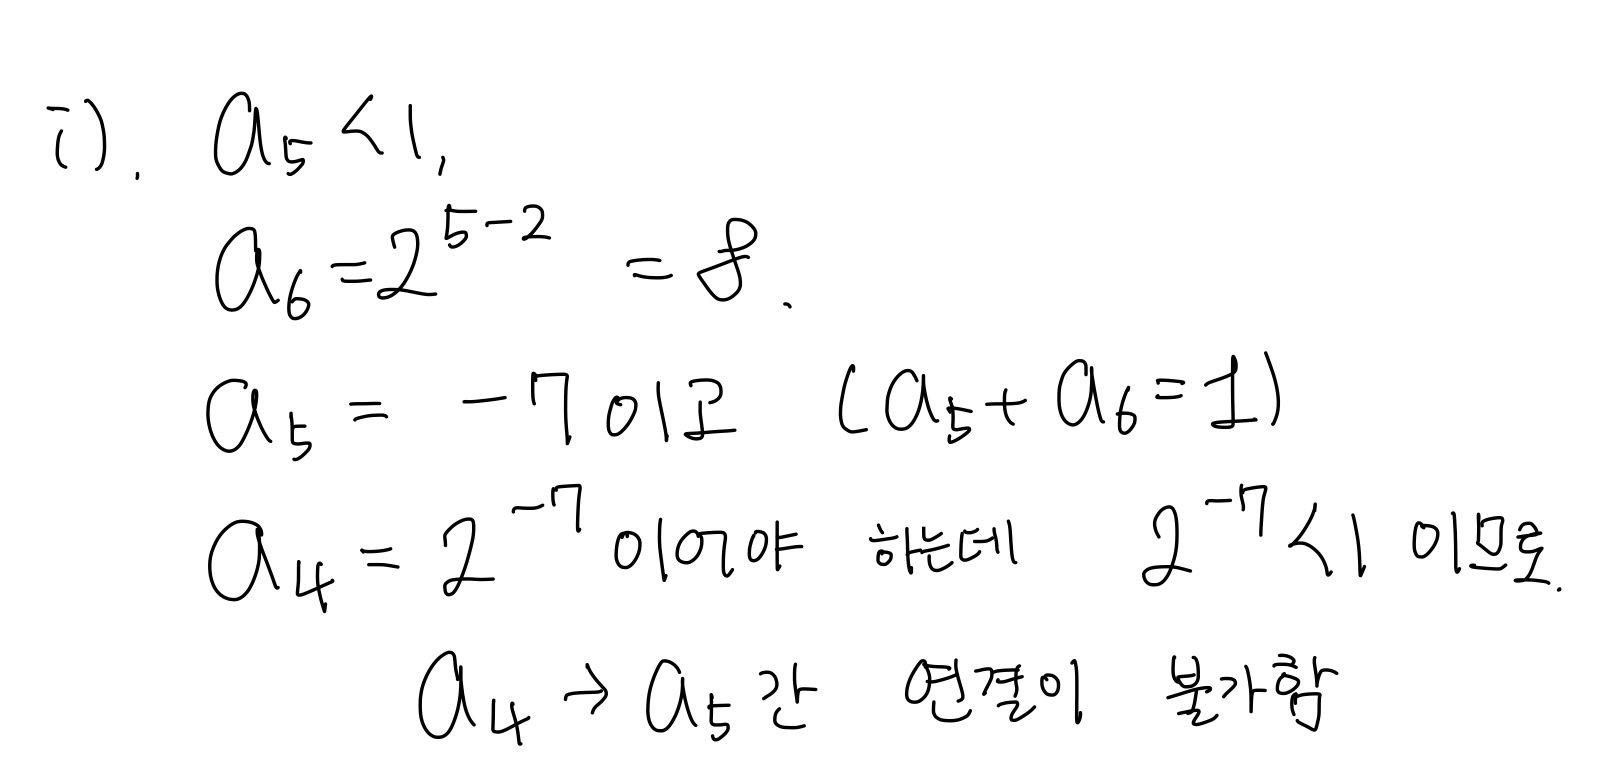 i). a₅<1,
a₆=2⁵⁻² =8.
a₅= -7이고 (a₅+a₆=1)
a₄=2⁻⁷이어야 하는데 2⁻⁷<1 이므로.
a₄→a₅간 연결이 불가함